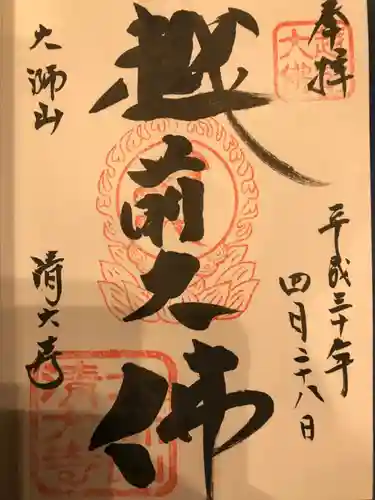 奉拝
越前大佛
平成三十年
四月二十八日
大師山
清大寺
越前
大佛